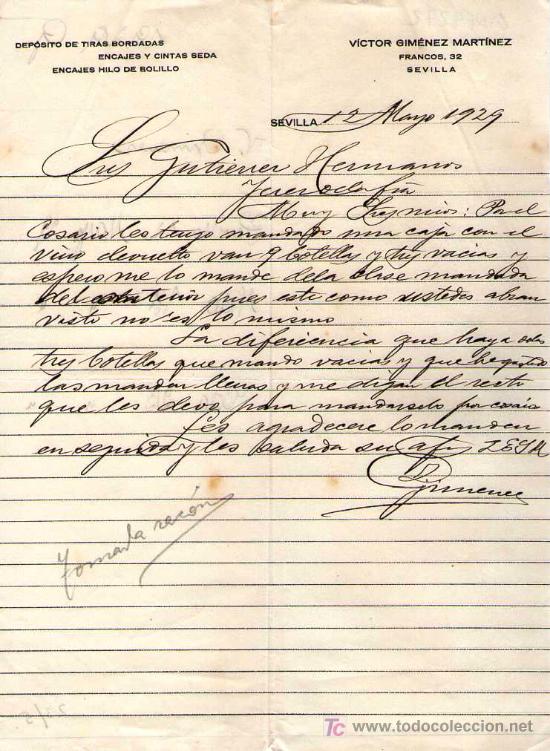 DEPÓSITO DE TIRAS BORDADAS
ENCAJES Y CINTAS SEDA
ENCAJES HILO DE BOLILLO
VÍCTOR GIMÉNEZ MARTÍNEZ
FRANCOS, 32
SEVILLA
SEVILLA 12 Mayo 1929
Sres Gutierrez Hermanos
Jerez de la fra
Muy Sres mios: Por el
Cosario les tengo mandado una caja con el
vino devuelto van 9 botellas y tres vacias y
espero me lo mande de la clase mandada
del anterior pues este como ustedes abran
visto no es lo mismo
La diferiencia que haya de las
tres botellas que mando vacias y que he gastado
las mandan llenas y me digan el resto
que les devo para mandarselo por cosario
Les agradecere lo manden
en seguida y les saluda su afs
Gimenez
Tomada razón
TC www.todocoleccion.net